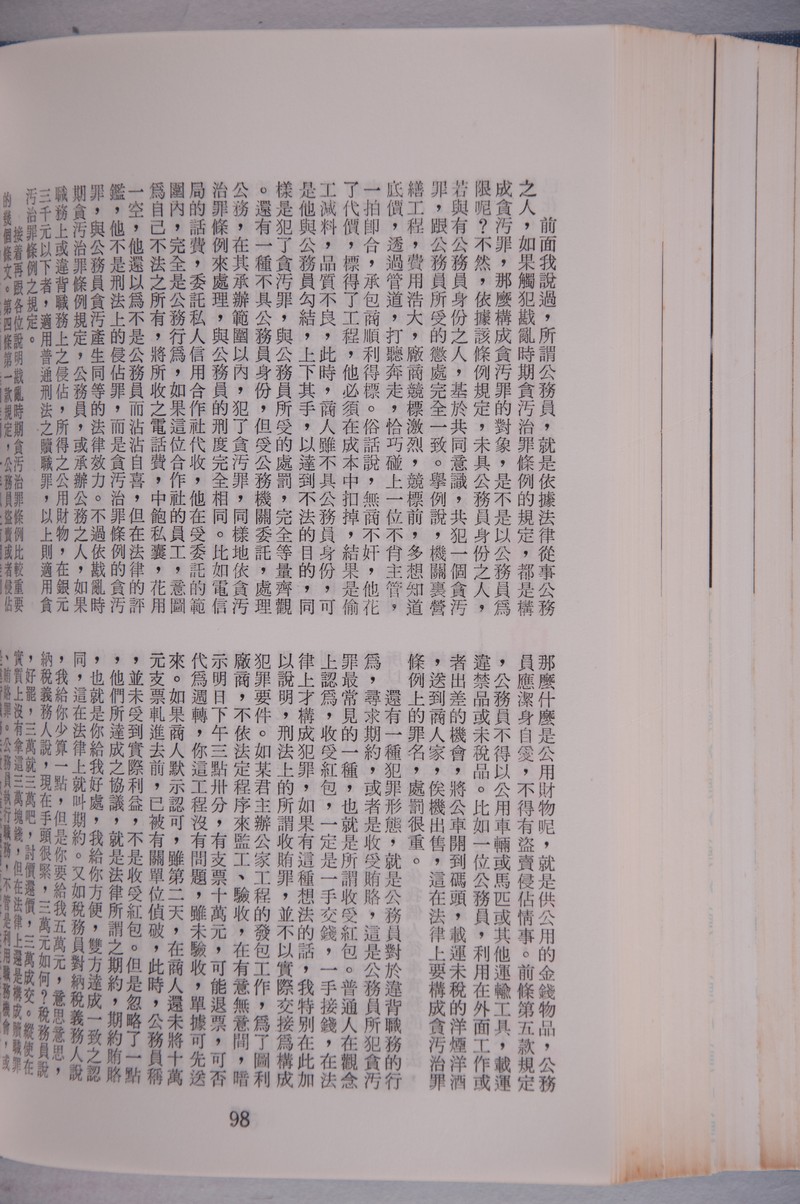 前面我說過，所謂公務員，就是依據法律從事公務
之人，如果觸犯戡亂時期貪污治罪條例的規定，都是構
成貪污罪，那麼構成貪污罪的對象，是不是以公務員爲
限呢？不然，依據該條例規定，未具公務員身份之人，
若與有公務員身份之人，基於共同意識，共犯一個貪污
罪，跟公務員所受的懲處完全一致。舉例說，機關裏營
繕工程，費用浩大，廠商競標激烈，競標前，多想知道
底價，透過管道，打聽奔走，恰巧碰上一位不肯主管，
一拍卽合，承包商順利得標。俗話說，無商不奸，他花
了代價，標得了工程，他必須在成本中扣掉，結果是偷
工減料，品質不良，此時，商人雖不具公務員身份，可
是他與公務員勾結，上下其手，以達到不法的目的，同
樣是犯了貪污罪，與公務員所受的處罰，完全等量齊觀
。還有一種不具公務員身份，但受公務機關委託，處理
公務，在其承辦範圍以內，犯了貪污罪，同樣地依貪污
治罪條例來處理，與公務員的刑度完全相同。比如電信
局的話費，委託私人信用合作社代收，他在受委託的範
圍內，完全是公務行爲，如果這位合作社的員工，意圖
爲自己不法之所有，將所收之電話費，中飽私囊，花用
一空，他還以爲不是公務員而沾沾自喜，但在法律的評
鑑，他不是刑法上的侵佔罪，而是貪污治罪條例的貪污
罪，與公務員貪污產生同等的法律效力。不過依戡亂時
期貪污治罪條例規定，公務員，或承辦公務之人，如果
職務上或違背職務上之侵佔，所得之公用財物，在銀元
三千元以下者，適用普通刑法之贖職罪，以上則適用貪
污治罪條例之規定。
接着再跟各位說明戡亂時期貪污治罪條例比較重要
的幾個條文。第四條第一款規定，公務員盜賣或者侵佔
那麼什麼是公用財物呢，就是供公用的金錢物品，公務
員應潔身自愛，不得有盜賣侵佔情事。前條第五款規定
，公務員不得以公用車輛或馬匹或其他運輸工具，載運
違禁品或未稅品。比如一位公務員，利用在外面工作或
者出差的機會，將公車開到碼頭，載運未稅的洋煙洋酒
，送到商人家，俟機出售，這在法律上要構成貪污治罪
條例上的罪名，處罰很重。
還有一種犯罪形態，就是公務員對於違背職務的行
爲，尋求期約，或者是收受賄賂，這是公務員所犯貪污
罪最常見的一種，也就是所謂收受紅包。普通人在觀念
上認爲，收受紅包，一定是一手交錢，一手接錢，在法
律上才構成犯罪，如果有這種想法的話，我特別在此加
以說明，刑法上的所謂收賄罪，並不以實際交接爲構成
犯罪要件。如某君主辦公家工程的發包工作，爲了圖利
廠商，不依法定程序來監工、驗收，在有意無意間，暗
示明日下午三點卅分，有支票十萬元，可能退票，可否
代爲週轉，你這工程沒有問題，雖未驗收，單據可先送
來。如果商人默示認可，雖第二天，在商人還未將十萬
元支票軋進去前，已被有關單位偵破，此時，公務員稱
，並未受到實際利益，不是收受紅包。但是忽略了一點
，他們所達成之協議，就是法律所謂之期約，期約賄賂
，也就是你給我好處，我給你方便，雙方達成一致之認
同，這在法律上就叫期約。又如稅務員對納稅義務人說
，我給你少算一點，但是你要給我五萬元，意思意思，
納稅義務人說，現在手頭很緊，三萬元如何？稅務員說
，好罷，三萬就三萬吧，討價還價，三萬成交。縱使在
實質上沒有拿這三萬塊錢，但在法律上還是構成贖職罪
、賄賂罪。公務員執行職務，不管是利用職務機會，或
98